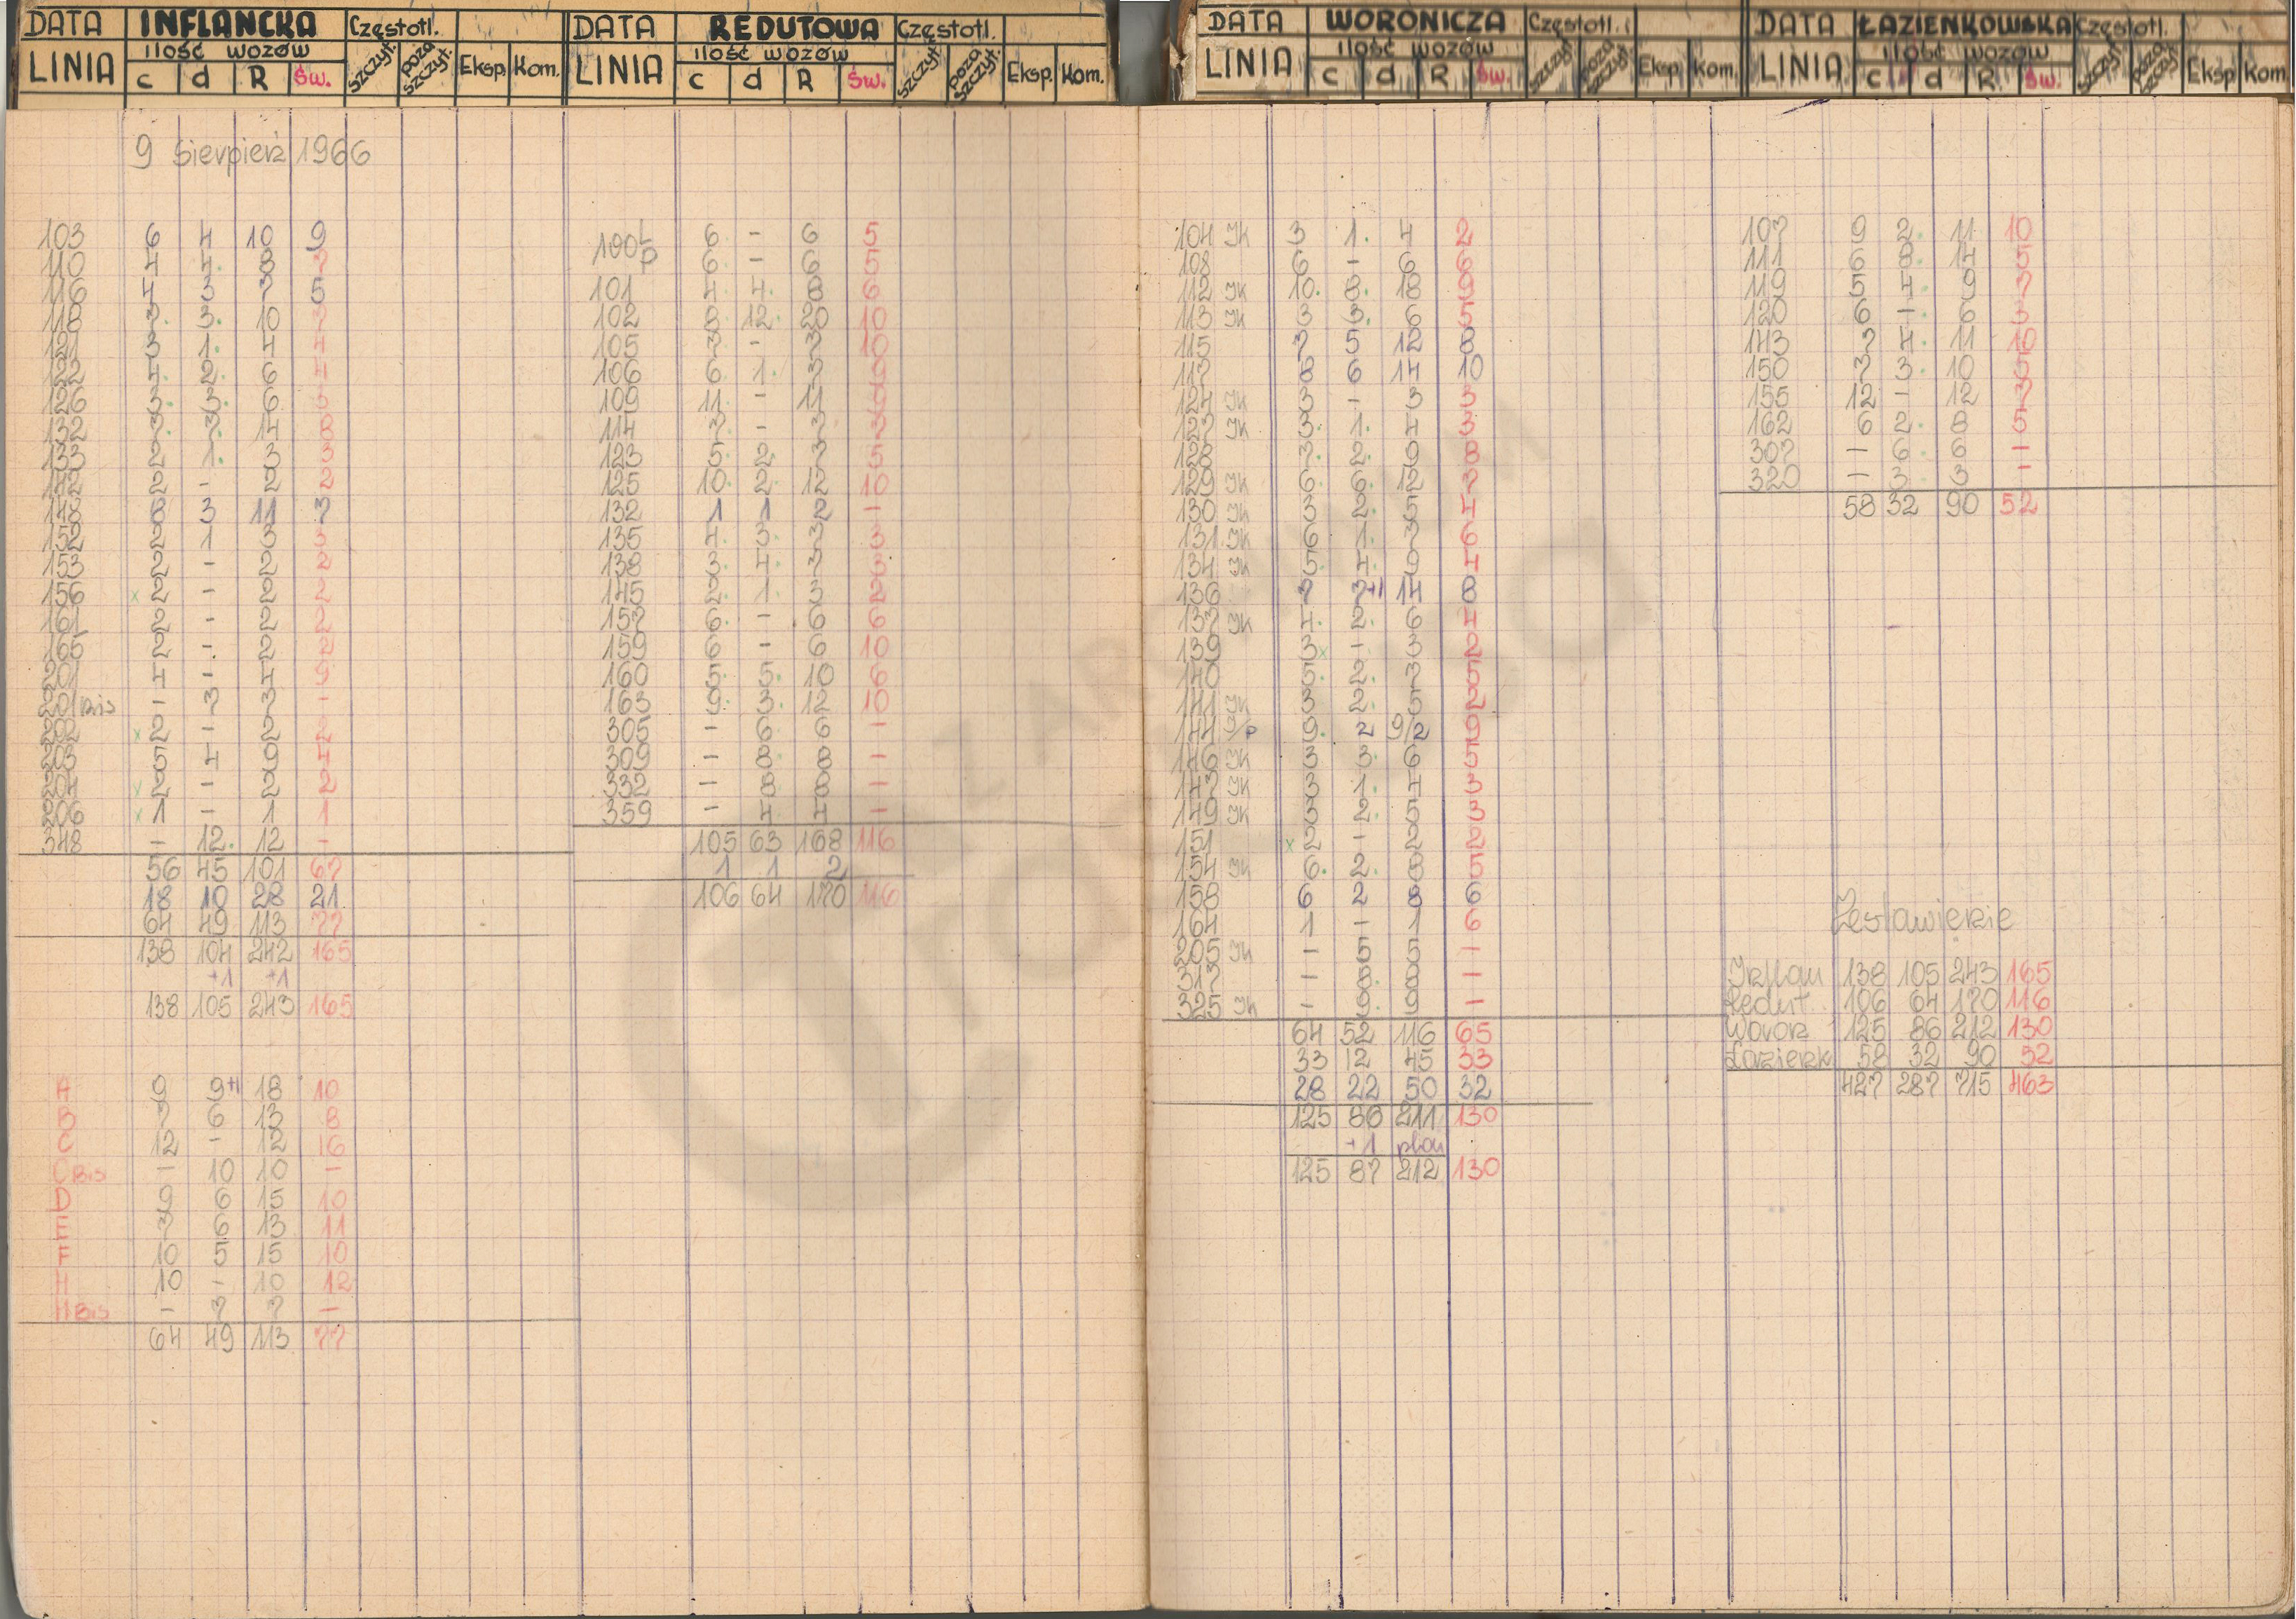 DATA INFLANCKA Częstotl.
LINIA ilość wozów c d R Św. szczyt. poza szczyt. Eksp. Kom.
9 Sierpień 1966
103 6 4 10 9
110 4 4. 8 7
116 4 3 7 5
118 7. 3. 10 7
121 3 1. 4 4
122 4. 2. 6 4
126 3. 3. 6 3
132 7. 7. 14 8
133 2 1. 3 3
142 2 - 2 2
148 8 3 11 7
152 2 1 3 3
153 2 - 2 2
156 x 2 - 2 2
161 2 - 2 2
165 2 - 2 2
201 4 - 4 9
201 bis - 7 7 -
202 x 2 - 2 2
203 5 4 9 4
204 x 2 - 2 2
206 x 1 - 1 1
348 - 12. 12 -
56 45 101 67
18 10 28 21
64 49 113 77
138 104 242 165
+1 +1
138 105 243 165
A 9 9+1 18 10
B 7 6 13 8
C 12 - 12 16
C Bis - 10 10 -
D 9 6 15 10
E 7 6 13 11
F 10 5 15 10
H 10 - 10 12
H Bis - 7 7 -
64 49 113 77
DATA REDUTOWA Częstotl.
LINIA ilość wozów c d R Św. szczyt. poza szczyt. Eksp. Kom.
100 L 6 - 6 5
P 6 - 6 5
101 4. 4. 8 6
102 8 12. 20 10
105 7 - 7 10
106 6 1. 7 7
109 11. - 11 9
114 7 - 7 7
123 5. 2. 7 5
125 10. 2. 12 10
132 1 1 2 -
135 4. 3. 7 3
138 3. 4. 7 5
145 2. 1. 3 2
157 6. - 6 6
159 6 - 6 10
160 5. 5. 10 6
163 9. 3. 12 10
305 - 6 6 -
309 - 8. 8 -
332 - 8 8 -
359 - 4 4 -
105 63 168 116
1 1 2
106 64 170 116
DATA WORONICZA Częstotl.
LINIA ilość wozów c d R Św. szczyt. poza szczyt. Eksp. Kom.
104 JK 3 1. 4 2
108 6 - 6 6
112 JK 10. 8. 18 9
113 JK 3 3. 6 5
115 7 5 12 8
117 8 6 14 10
124 JK 3 - 3 3
127 JK 3. 1. 4 3
128 7. 2. 9 8
129 JK 6. 6. 12 7
130 JK 3 2. 5 4
131 JK 6 1. 7 6
134 JK 5. 4. 9 4
136 7 7+1 14 8
137 JK 4. 2. 6 4
139 3 x - 3 2
140 5. 2. 7 5
141 JK 3 2. 5 2
144 9/P 9. 2 9/2 9
146 JK 3 3. 6 5
147 JK 3 1. 4 3
149 JK 3 2. 5 3
151 x 2 - 2 2
154 JK 6. 2. 8 5
158 6 2 8 6
164 1 - 1 1
205 JK - 5 5 -
317 - 8. 8 -
325 JK - 9. 9 -
64 52 116 65
33 12 45 33
28 22 50 32
125 86 211 130
+1 plan
125 87 212 130
DATA ŁAZIENKOWSKA Częstotl.
LINIA ilość wozów c d R Św. szczyt. poza szczyt. Eksp Kom
107 9 2. 11 10
111 6 8. 14 5
119 5 4. 9 7
120 6 - 6 3
143 7 4. 11 10
150 7 3. 10 5
155 12 - 12 7
162 6 2. 8 5
307 - 6. 6 -
320 - 3. 3 -
58 32 90 52
Zestawienie
Inflan 138 105 243 165
Redut. 106 64 170 116
Woron 125 86 212 130
Łazienk 58 32 90 52
427 287 715 463